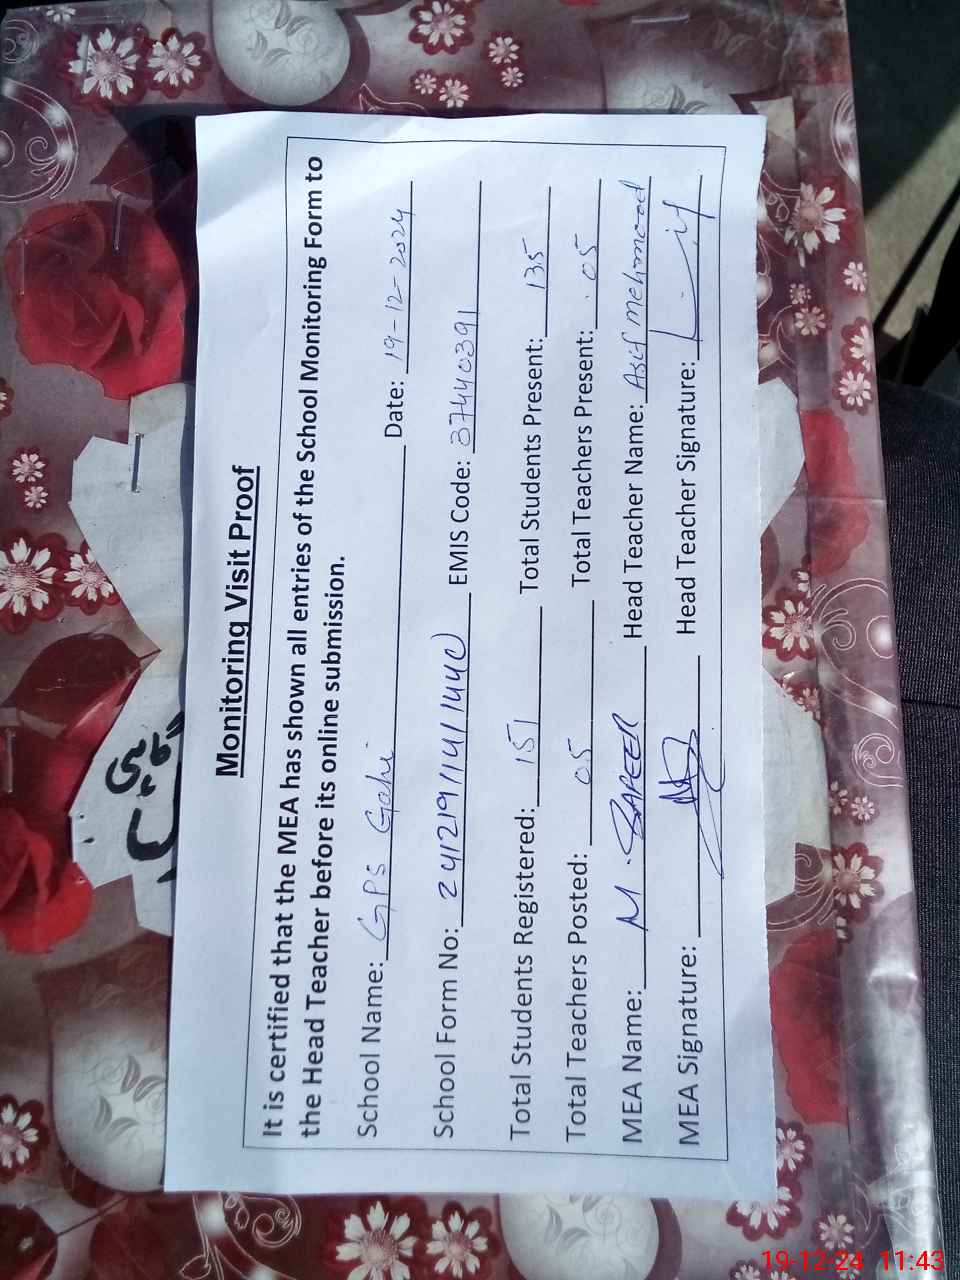 Monitoring Visit Proof
It is certified that the MEA has shown all entries of the School Monitoring Form to
the Head Teacher before its online submission.
School Name: GPS Gahi Date: 19-12-2024
School Form No: EMIS Code: 37440391
Total Students Registered: 151 Total Students Present: 135
Total Teachers Posted: 05 Total Teachers Present: 05
MEA Name: M. SAFEER Head Teacher Name: Asif Mehmood
MEA Signature: Head Teacher Signature:
19-12-24 11:43